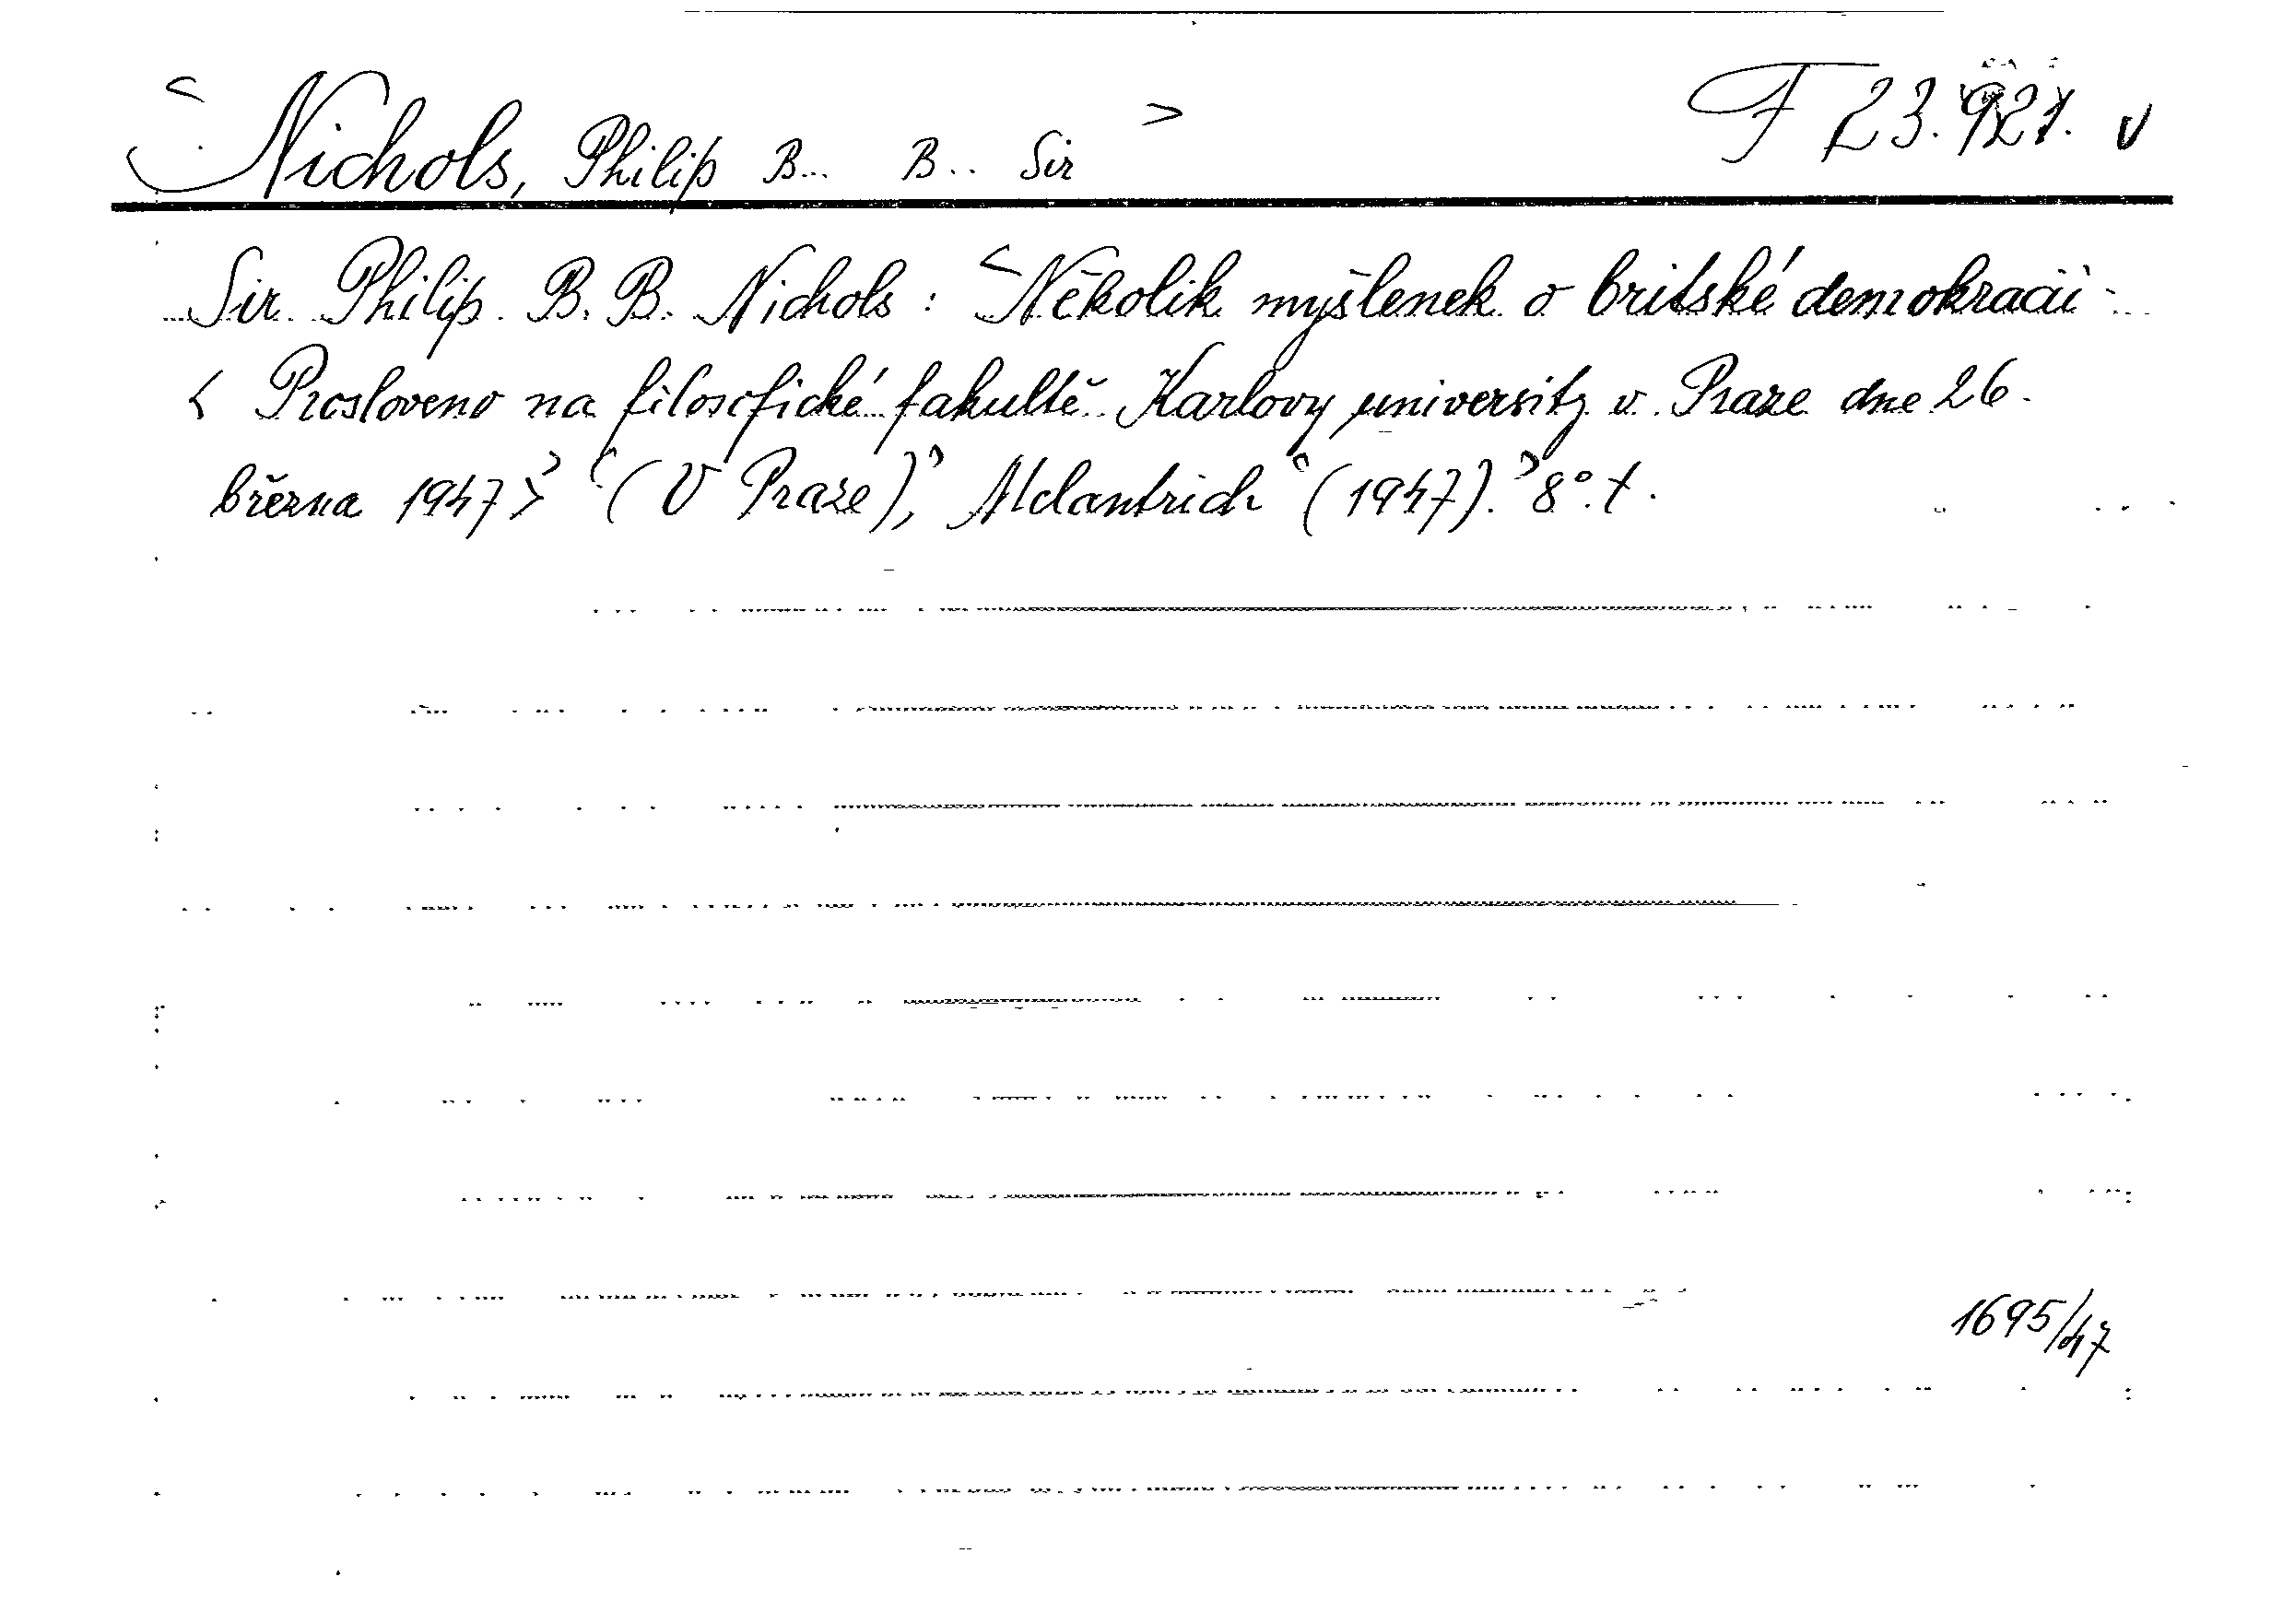 <Nichols, Philip B... B.. Sir> F 23.921. v
Sir Philip B. B. Nichols: <Několik myšlenek o britské demokracii.
< Prosloveno na filosofické fakultě Karlovy university v Praze dne 26.
března 1947>> <(V Praze),> Melantrich <(1947).> 8°. t.
1695/47